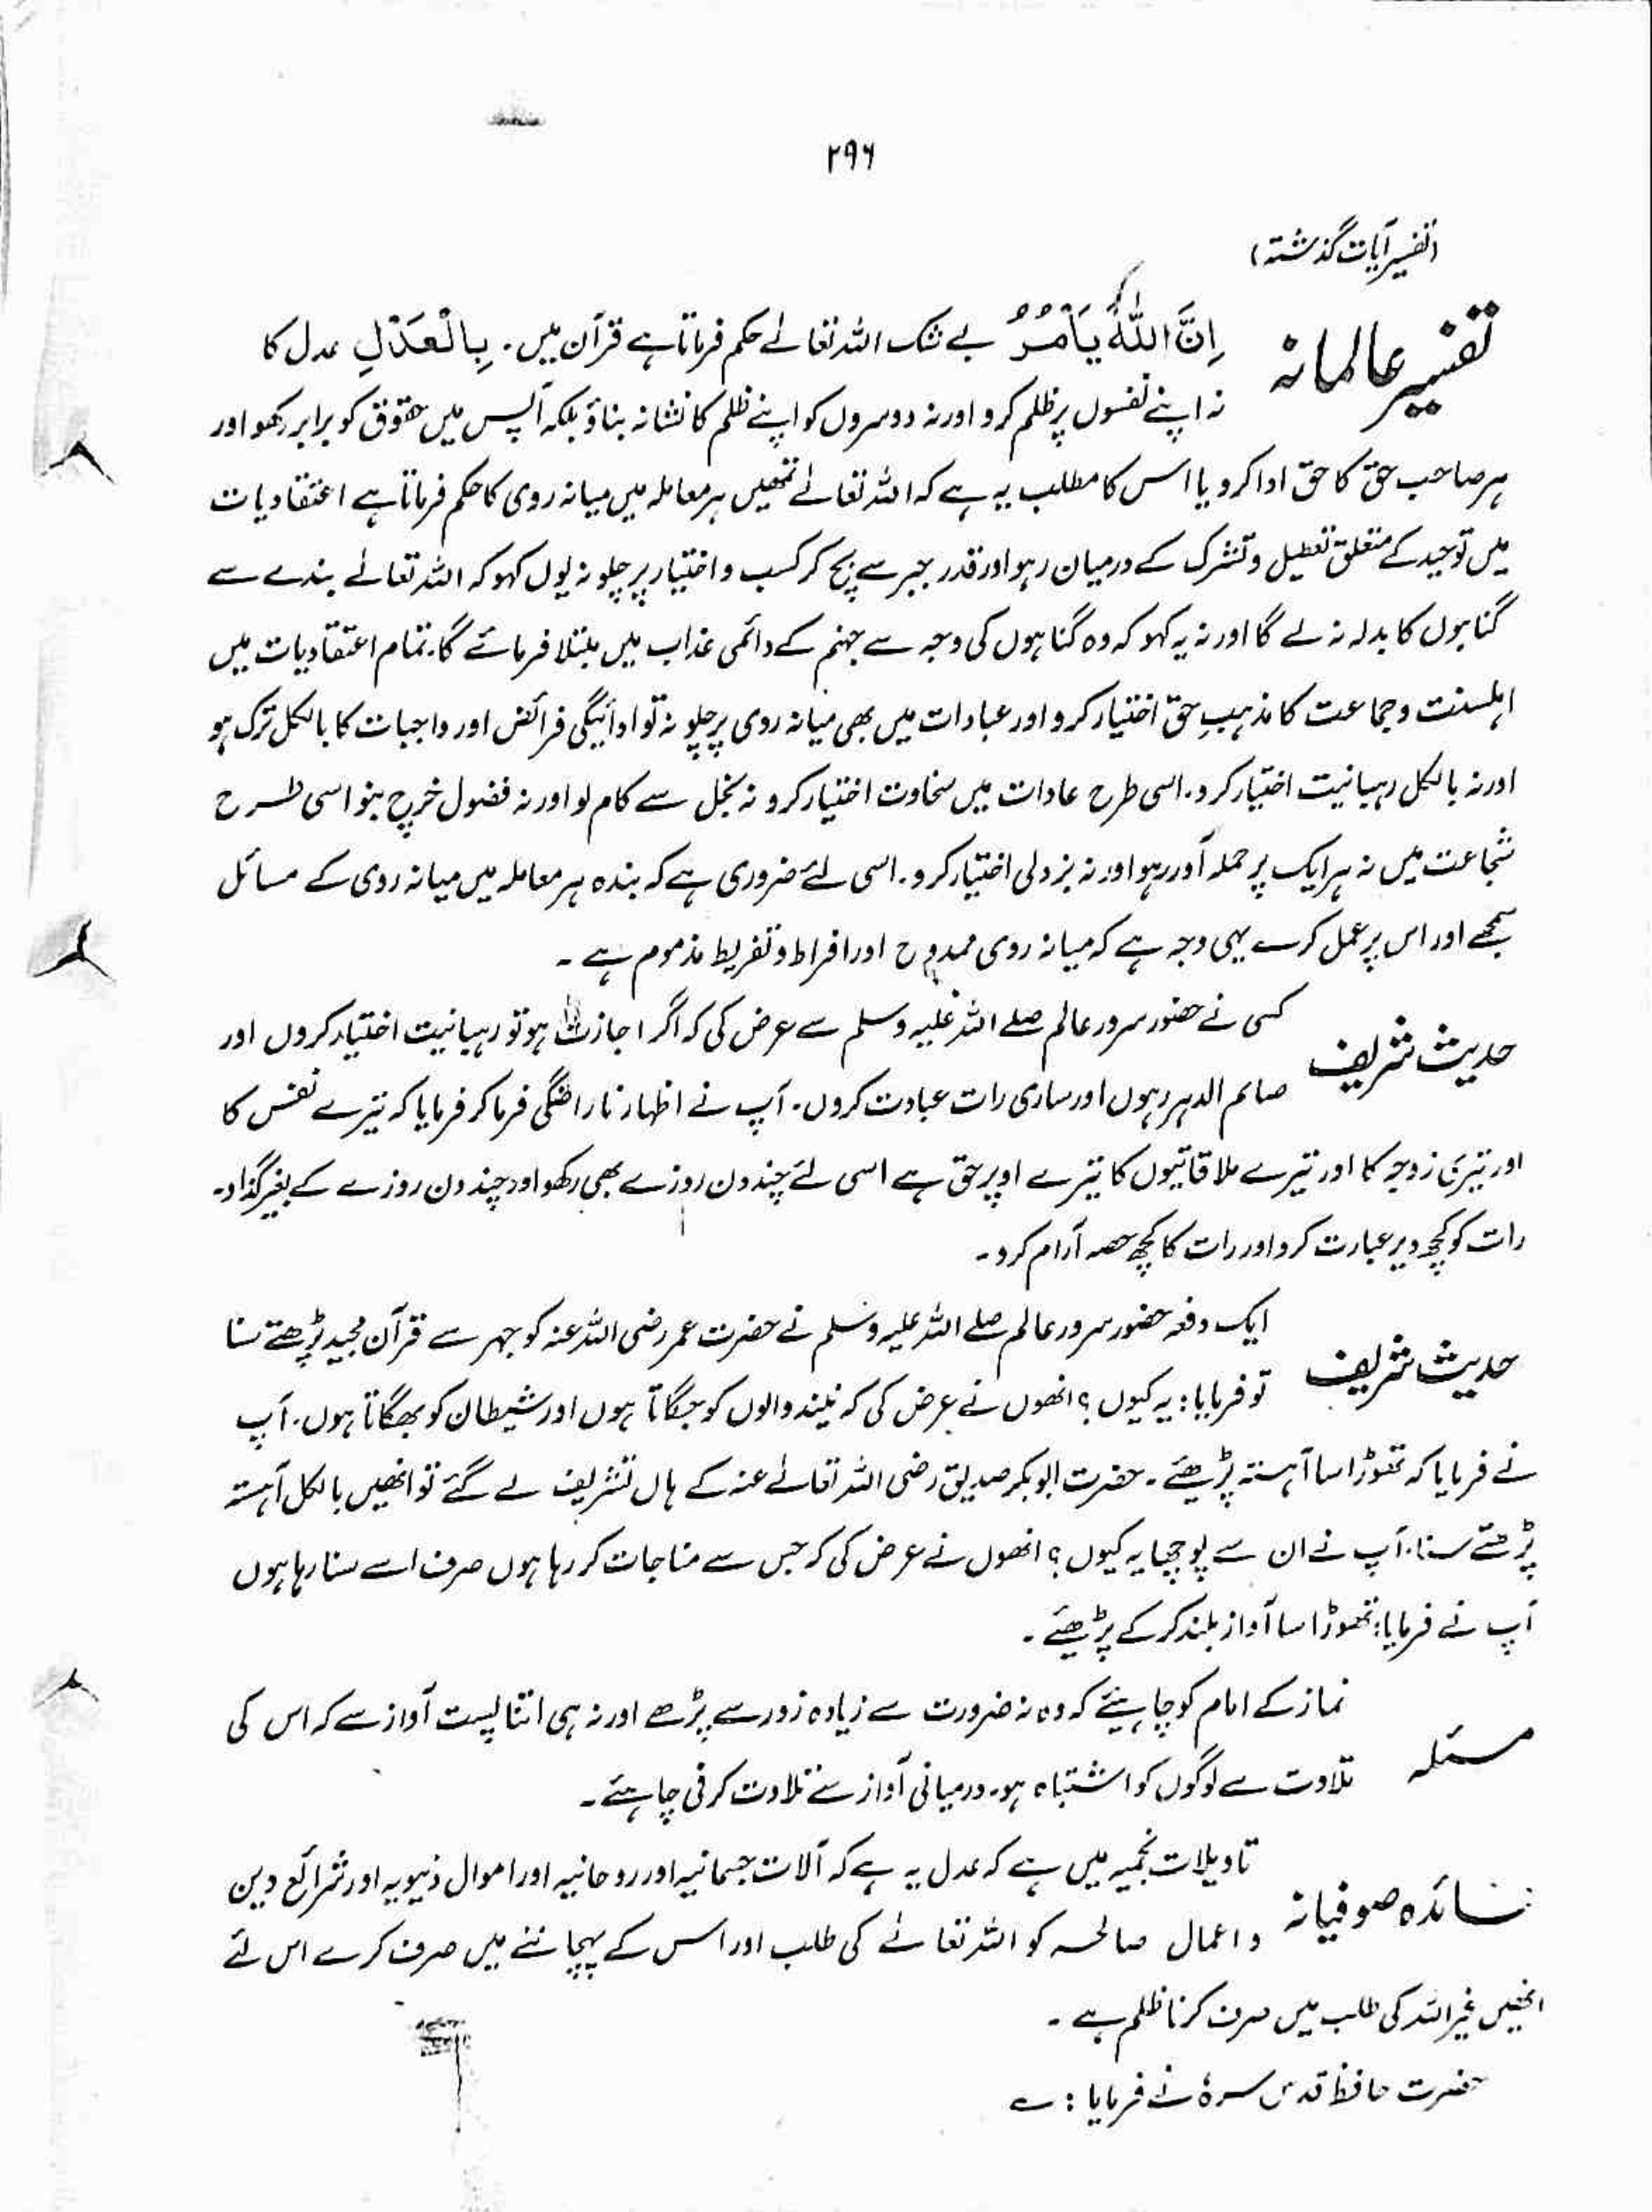 ۲۹۶
(تفسیر آیات گذشتہ)
تفسیر عالمانہ اِنَّ اللّٰہَ یَاْمُرُ بے شک اللہ تعالےٰ حکم فرماتا ہے قرآن میں۔ بِالْعَدْلِ عدل کا
نہ اپنے نفسوں پر ظلم کرو اور نہ دوسروں کو اپنے ظلم کا نشانہ بناؤ بلکہ آپس میں حقوق کو برابر رکھو اور
ہر صاحب حق کا حق ادا کرو یا اس کا مطلب یہ ہے کہ اللہ تعالےٰ تمھیں ہر معاملہ میں میانہ روی کا حکم فرماتا ہے اعتقادیات
میں توحید کے متعلق تعطیل و تشرک کے درمیان رہو اور قدر جبر سے بچ کر کسب و اختیار پر چلو نہ یوں کہو کہ اللہ تعالےٰ بندے سے
گناہوں کا بدلہ نہ لے گا اور نہ یہ کہو کہ وہ گناہوں کی وجہ سے جہنم کے دائمی عذاب میں مبتلا فرمائے گا۔ تمام اعتقادیات میں
اہلسنت و جماعت کا مذہبِ حق اختیار کرو اور عبادات میں بھی میانہ روی پر چلو نہ تو ادائیگی فرائض اور واجبات کا بالکل ترک ہو
اور نہ بالکل رہبانیت اختیار کرو۔ اسی طرح عادات میں سخاوت اختیار کرو نہ بخل سے کام لو اور نہ فضول خرچ بنو اسی طرح
شجاعت میں نہ ہر ایک پر حملہ آور رہو اور نہ بزدلی اختیار کرو۔ اسی لئے ضروری ہے کہ بندہ ہر معاملہ میں میانہ روی کے مسائل
سمجھے اور اس پر عمل کرے یہی وجہ ہے کہ میانہ روی ممدوح اور افراط و تفریط مذموم ہے۔
حدیث شریف کسی نے حضور سرور عالم صلے اللہ علیہ وسلم سے عرض کی کہ اگر اجازت ہو تو رہبانیت اختیار کروں اور
صائم الدہر رہوں اور ساری رات عبادت کروں۔ آپ نے اظہار ناراضگی فرما کر فرمایا کہ تیرے نفس کا
اور تیری زوجہ کا اور تیرے ملاقاتیوں کا تیرے اوپر حق ہے اسی لئے چند دن روزے بھی رکھو اور چند دن روزے کے بغیر گذارو۔
رات کو کچھ دیر عبارت کرو اور رات کا کچھ حصہ آرام کرو۔
حدیث شریف ایک دفعہ حضور سرور عالم صلے اللہ علیہ وسلم نے حضرت عمر رضی اللہ عنہ کو جہر سے قرآن مجید پڑھتے سنا
تو فرمایا: یہ کیوں؟ انھوں نے عرض کی کہ نیند والوں کو جگاتا ہوں اور شیطان کو بھگاتا ہوں۔ آپ
نے فرمایا کہ تھوڑا سا آہستہ پڑھیے۔ حضرت ابوبکر صدیق رضی اللہ تعالےٰ عنہ کے ہاں تشریف لے گئے تو انھیں بالکل آہستہ
پڑھتے سنا۔ آپ نے ان سے پوچھا یہ کیوں؟ انھوں نے عرض کی کہ جس سے مناجات کر رہا ہوں صرف اسے سنا رہا ہوں
آپ نے فرمایا: تھوڑا سا آواز بلند کر کے پڑھیئے۔
مسئلہ نماز کے امام کو چاہیئے کہ وہ نہ ضرورت سے زیادہ زور سے پڑھے اور نہ ہی اتنا پست آواز سے کہ اس کی
تلاوت سے لوگوں کو اشتباہ ہو۔ درمیانی آواز سے تلاوت کرنی چاہئے۔
فائدہ صوفیانہ تاویلات نجمیہ میں ہے کہ عدل یہ ہے کہ آلات جسمانیہ اور روحانیہ اور اموال دنیویہ اور شرائع دین
و اعمال صالحہ کو اللہ تعالےٰ کی طلب اور اس کے پہچاننے میں صرف کرے اس لئے
انھیں غیر اللہ کی طلب میں صرف کرنا ظلم ہے۔
حضرت حافظ قدس سرہٗ نے فرمایا: ؎